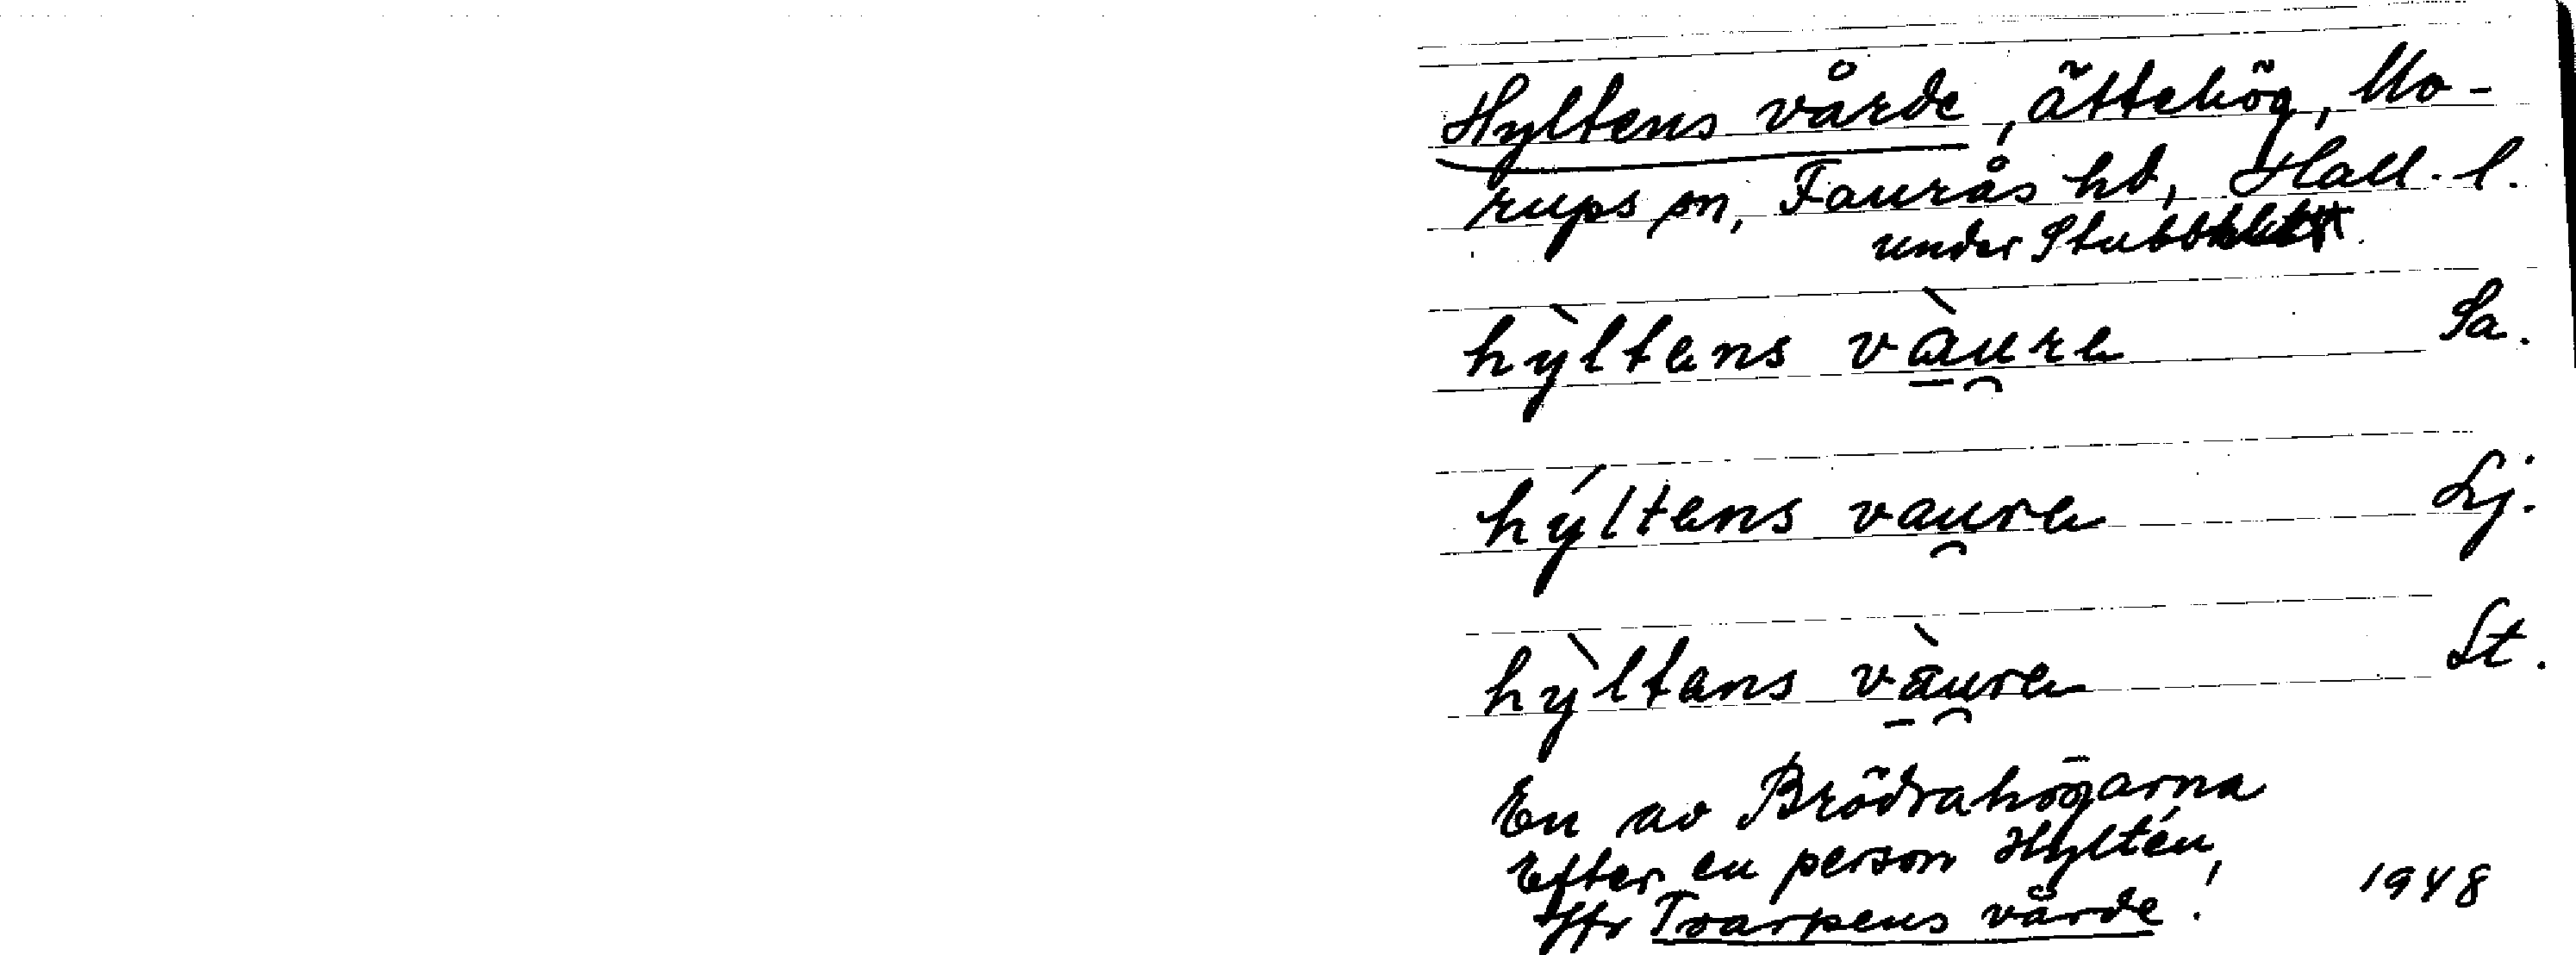 Hyltens vårde, ättehög, Mo-
rups sn, Faurås hd, Hall. l.
under
hỳltens vàure Sa.
hýltens vaure Lj.
hỳltens vàure St.
En av Brödrahögarna
Efter en person Hyltén,
Jfr Tvarpens vårde! 1948